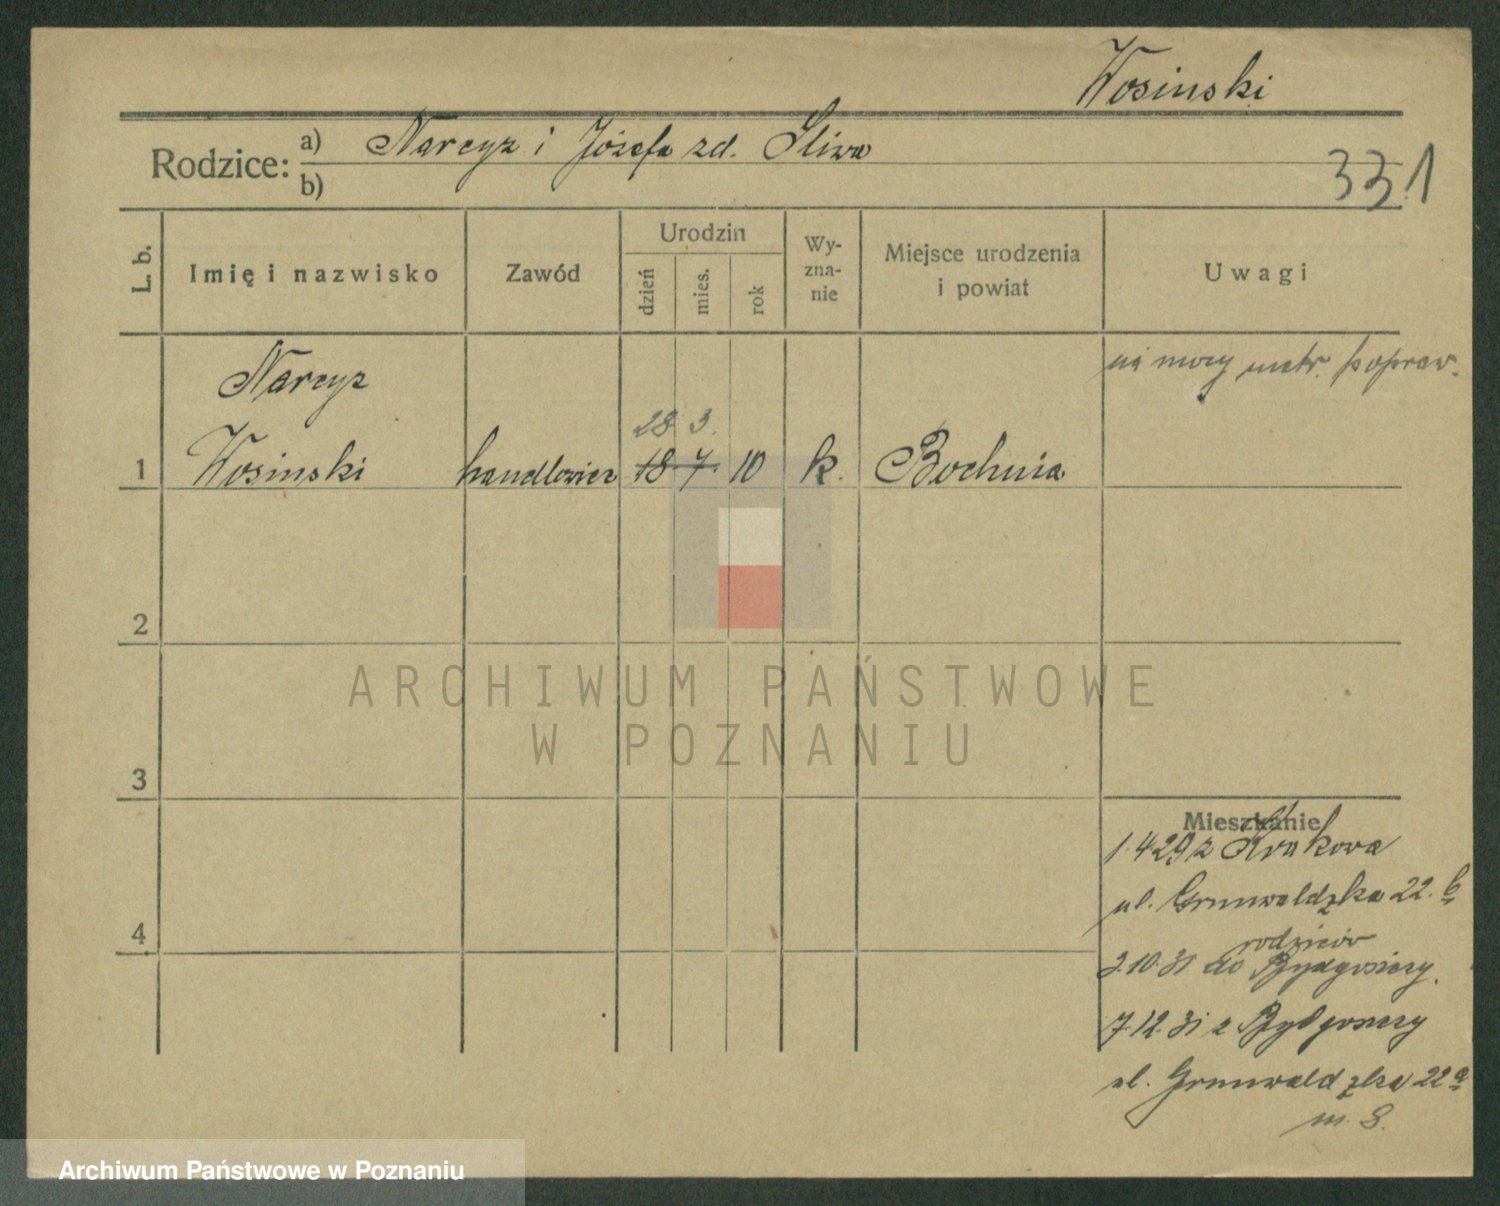 Wosinski
Rodzice: a) Narcyz i Józefa zd. Śliwa
b)
331
L. b.
Imię i nazwisko
Zawód
Urodzin
dzień
mies.
rok
Wy-
zna-
nie
Miejsce urodzenia
i powiat
Uwagi
na mocy metr. popraw.
Narcyz
28 3.
1 Wosinski handlowiec 18 7. 10 k. Bochnia
2
ARCHIWUM PAŃSTWOWE
W POZNANIU
3
Mieszkanie
1.4 29 z Krakowa
ul. Grunwaldzka 22. b
rodziców
2.10.31 do Bydgoszczy.
4
7.12.31 z Bydgoszczy
ul. Grunwaldzka 22 a
m. 8.
Archiwum Państwowe w Poznaniu